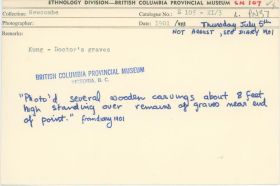 ETHNOLOGY DIVISION—BRITISH COLUMBIA PROVINCIAL MUSEUM
Collection: Newcombe
Catalogue No.:
Photographer
Date: 1901
Thursday July 5th
NOT AUGUST, SEE DIARY 1901
Remarks
Kung - Doctor's graves
BRITISH COLUMBIA PROVINCIAL MUSEUM
VICTORIA, B. C.
"Photo'd several wooden carvings about 8 feet
high standing over remains of graves near end
of point."
1901